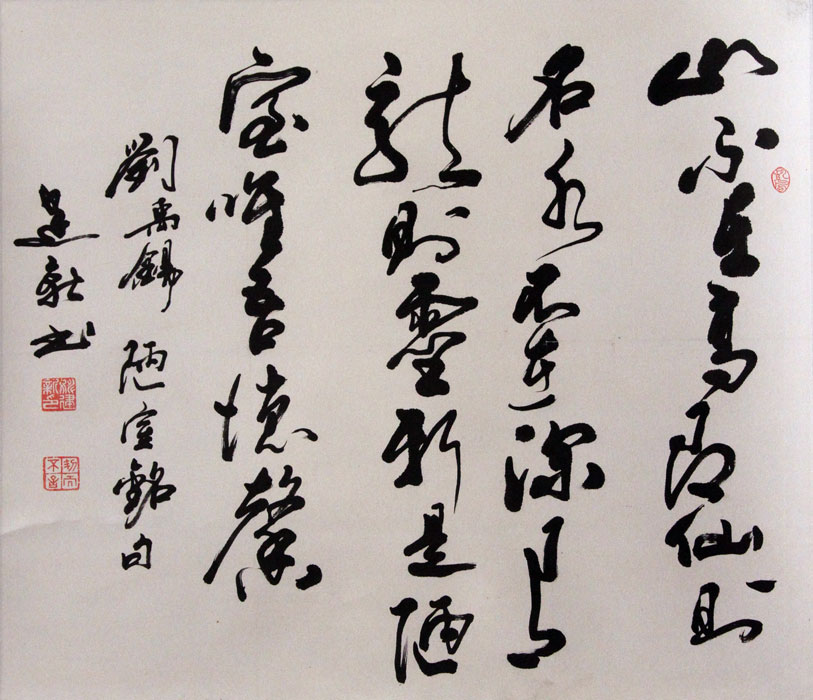 山不在高有仙則
名水不在深有
龍則靈斯是陋
室唯吾德馨
劉禹錫 陋室銘句
建新书